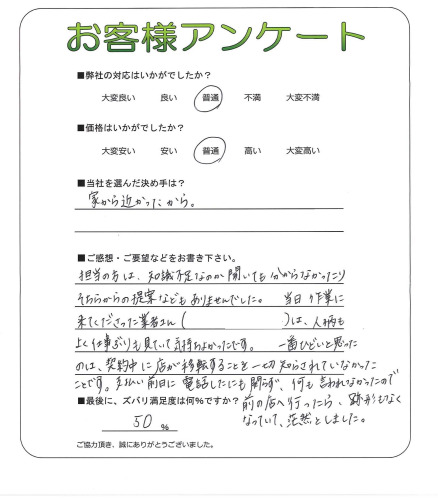 お客様アンケート
■弊社の対応はいかがでしたか？
大変良い 良い 普通 不満 大変不満
■価格はいかがでしたか？
大変安い 安い 普通 高い 大変高い
■当社を選んだ決め手は？
家から近かったから。
■ご感想・ご要望などをお書き下さい。
担当の方は、知識不足なのか聞いても分からなかったり
そちらからの提案などもありませんでした。 当日作業に
来てくださった業者さん（ ）は、人柄も
よく仕事ぶりも見ていて気持ちよかったです。 一番ひどいと思った
のは、契約中に店が移転することを一切知らされていなかった
ことです。支払い前日に電話したにも関らず、何も言われなかったので
前の店へ行ったら、跡形もなく
なっていて、茫然としました。
■最後に、ズバリ満足度は何％ですか？
50 %
ご協力頂き、誠にありがとうございました。